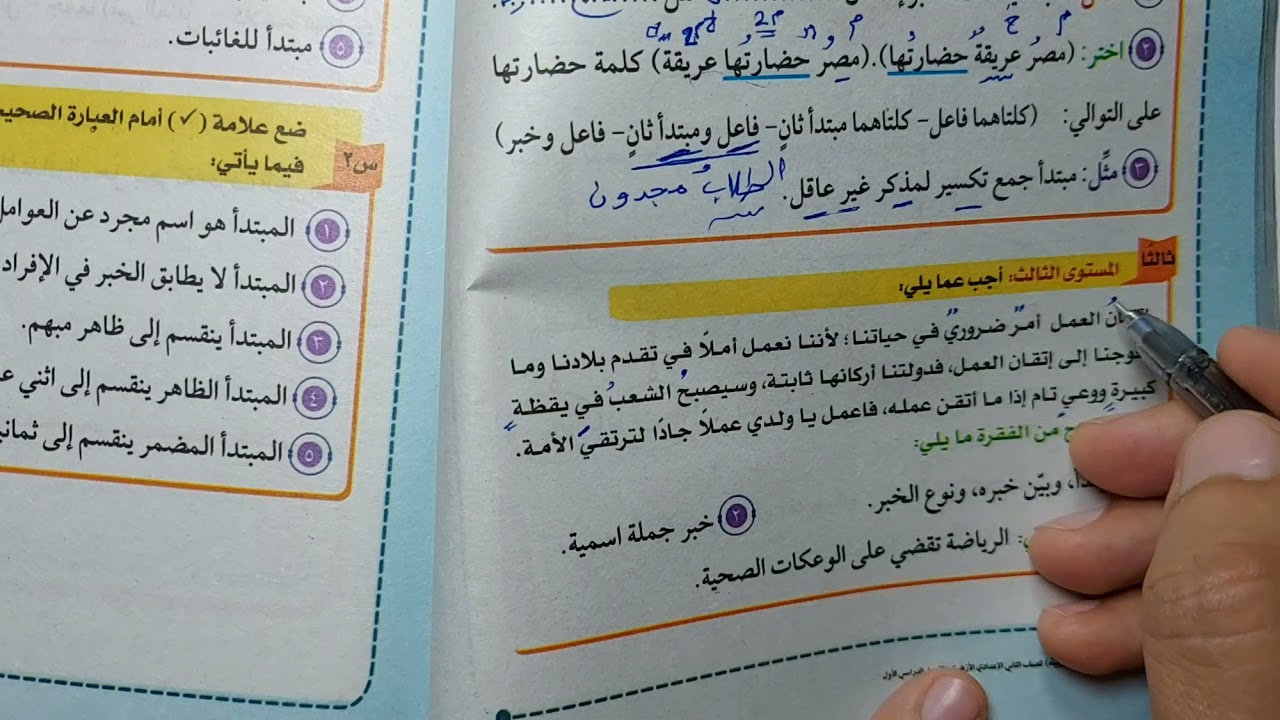 ٢ اختر: (مصرُ عريقةٌ حضارتُها). (مصرُ حضارتُها عريقة) كلمة حضارتها
على التوالي: (كلتاهما فاعل - كلتاهما مبتدأ ثانٍ - فاعل ومبتدأ ثانٍ - فاعل وخبر)
٣ مثِّل: مبتدأ جمع تكسير لمذكر غير عاقل. الطلابُ مجدون
ثالثًا المستوى الثالث: أجب عما يلي:
العمل أمرٌ ضروريٌ في حياتنا؛ لأننا نعمل أملًا في تقدم بلادنا وما
إلى إتقان العمل، فدولتنا أركانها ثابتة، وسيصبحُ الشعبُ في يقظةٍ
كبيرةٍ ووعيٍ تام إذا ما أتقن عمله، فاعمل يا ولدي عملًا جادًا لترتقيَ الأمة.
من الفقرة ما يلي:
وبيّن خبره، ونوع الخبر.
٢ خبر جملة اسمية.
الرياضة تقضي على الوعكات الصحية.
٥ مبتدأ للغائبات.
س٢ ضع علامة (✓) أمام العبارة
فيما يأتي:
١ المبتدأ هو اسم مجرد عن
٢ المبتدأ لا يطابق الخبر في الإفراد
٣ المبتدأ ينقسم إلى ظاهر مبهم.
٤ المبتدأ الظاهر ينقسم إلى اثني
٥ المبتدأ المضمر ينقسم إلى